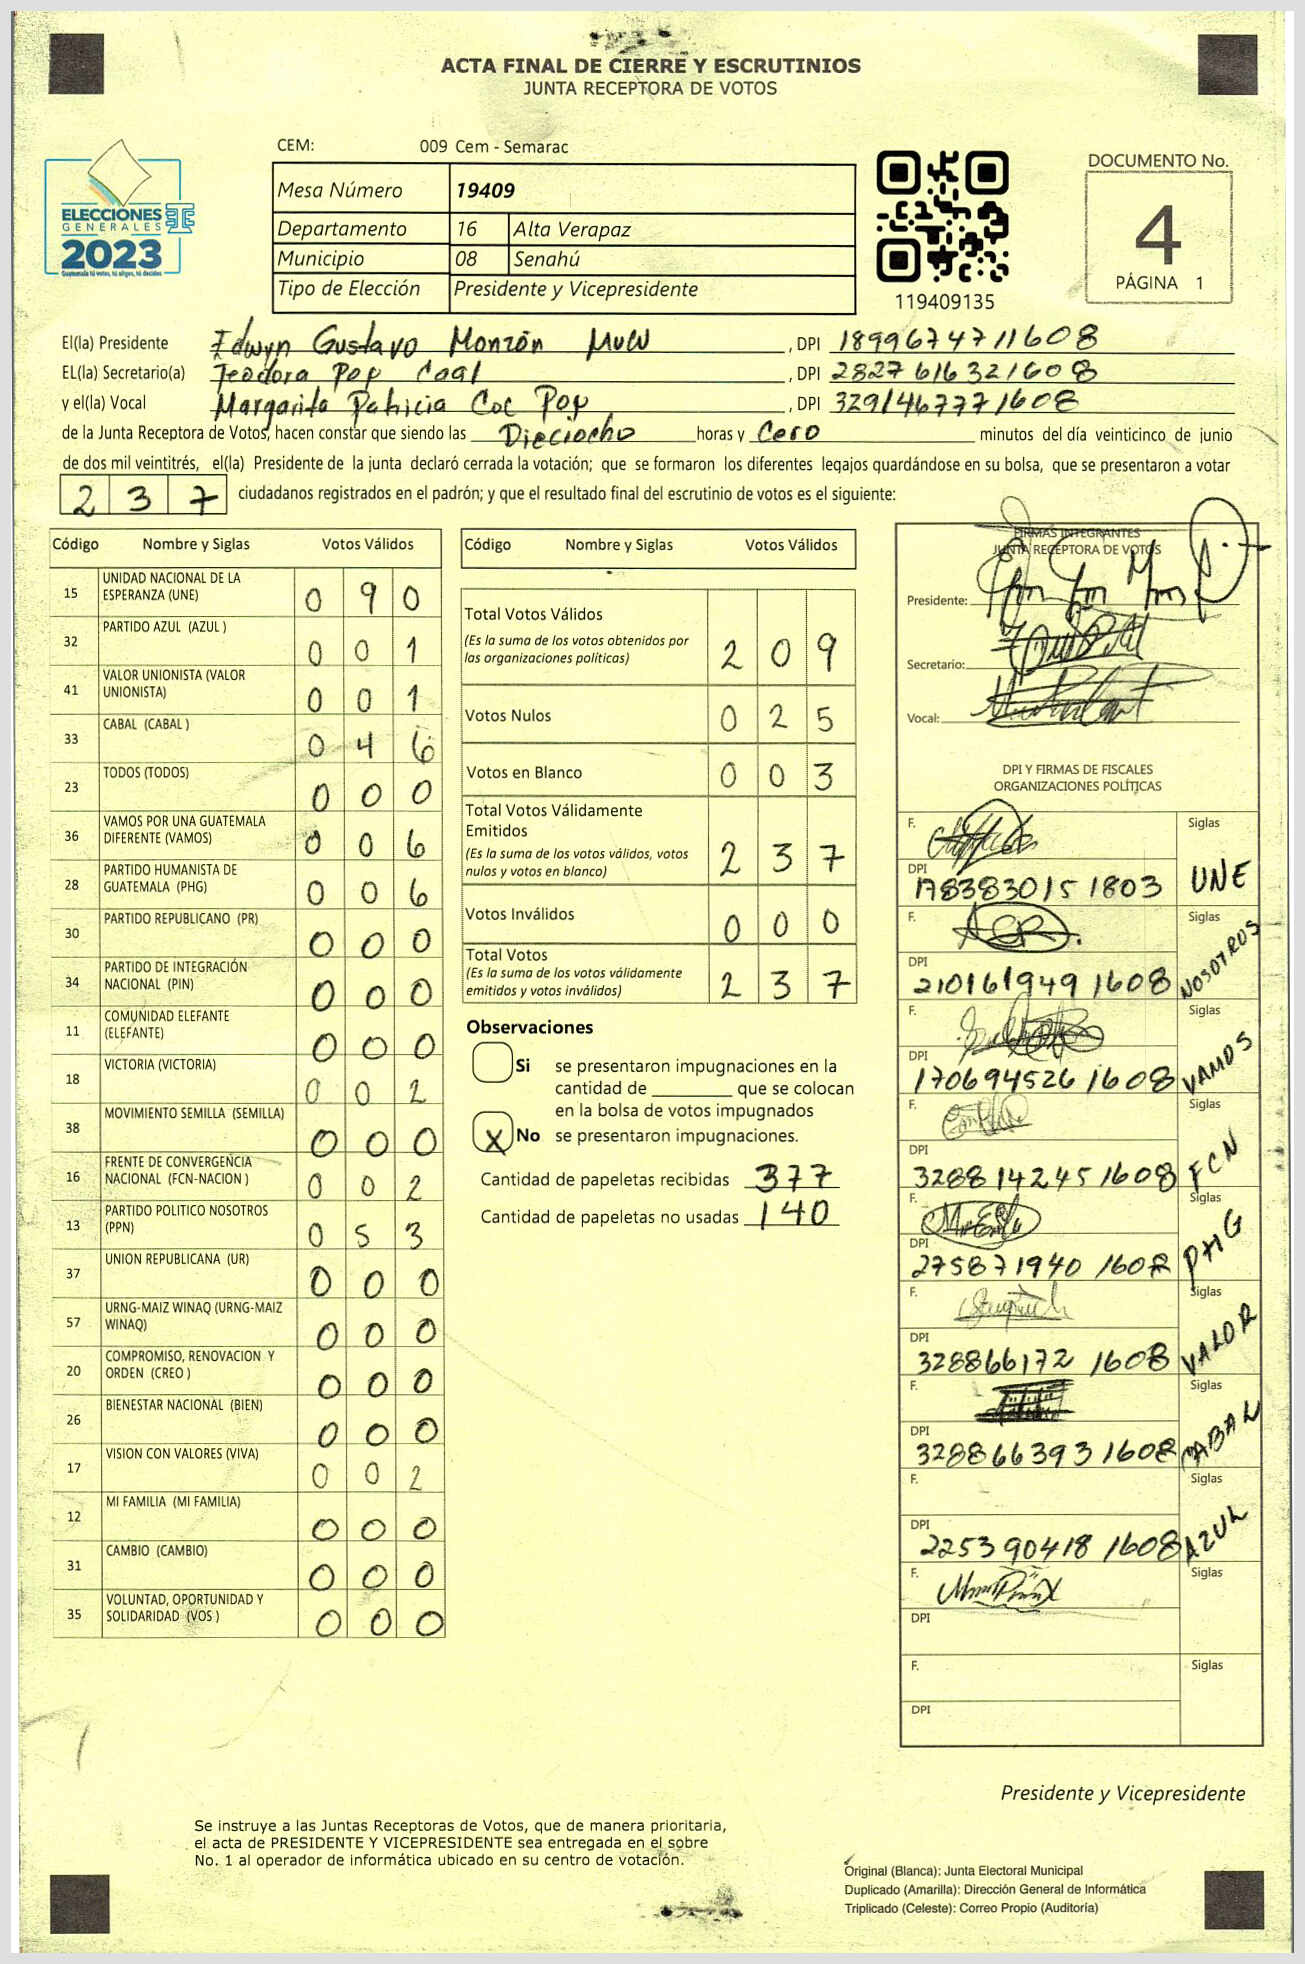 ACTA FINAL DE CIERRE Y ESCRUTINIOS
JUNTA RECEPTORA DE VOTOS
CEM: 009 Cem - Semarac
ELECCIONES
GENERALES
2023
Guatemala tú votas, tú eliges, tú decides
Mesa Número 19409
Departamento 16 Alta Verapaz
Municipio 08 Senahú
Tipo de Elección Presidente y Vicepresidente
119409135
DOCUMENTO No.
4
PÁGINA 1
El(la) Presidente Edwyn Gustavo Monzón Muw , DPI 1899674711608
EL(la) Secretario(a) Teodora Pop Caal , DPI 2827616321608
y el(la) Vocal Margarita Patricia Coc Pop , DPI 3291467771608
de la Junta Receptora de Votos, hacen constar que siendo las Dieciocho horas y Cero minutos del día veinticinco de junio
de dos mil veintitrés, el(la) Presidente de la junta declaró cerrada la votación; que se formaron los diferentes legajos quardándose en su bolsa, que se presentaron a votar
237 ciudadanos registrados en el padrón; y que el resultado final del escrutinio de votos es el siguiente:
Código Nombre y Siglas Votos Válidos
15 UNIDAD NACIONAL DE LA ESPERANZA (UNE) 0 9 0
32 PARTIDO AZUL (AZUL ) 0 0 1
41 VALOR UNIONISTA (VALOR UNIONISTA) 0 0 1
33 CABAL (CABAL ) 0 4 6
23 TODOS (TODOS) 0 0 0
36 VAMOS POR UNA GUATEMALA DIFERENTE (VAMOS) 0 0 6
28 PARTIDO HUMANISTA DE GUATEMALA (PHG) 0 0 6
30 PARTIDO REPUBLICANO (PR) 0 0 0
34 PARTIDO DE INTEGRACIÓN NACIONAL (PIN) 0 0 0
11 COMUNIDAD ELEFANTE (ELEFANTE) 0 0 0
18 VICTORIA (VICTORIA) 0 0 2
38 MOVIMIENTO SEMILLA (SEMILLA) 0 0 0
16 FRENTE DE CONVERGENCIA NACIONAL (FCN-NACION ) 0 0 2
13 PARTIDO POLITICO NOSOTROS (PPN) 0 5 3
37 UNION REPUBLICANA (UR) 0 0 0
57 URNG-MAIZ WINAQ (URNG-MAIZ WINAQ) 0 0 0
20 COMPROMISO, RENOVACION Y ORDEN (CREO ) 0 0 0
26 BIENESTAR NACIONAL (BIEN) 0 0 0
17 VISION CON VALORES (VIVA) 0 0 2
12 MI FAMILIA (MI FAMILIA) 0 0 0
31 CAMBIO (CAMBIO) 0 0 0
35 VOLUNTAD, OPORTUNIDAD Y SOLIDARIDAD (VOS ) 0 0 0
Código Nombre y Siglas Votos Válidos
Total Votos Válidos 2 0 9
(Es la suma de los votos obtenidos por
las organizaciones políticas)
Votos Nulos 0 2 5
Votos en Blanco 0 0 3
Total Votos Válidamente
Emitidos 2 3 7
(Es la suma de los votos válidos, votos
nulos y votos en blanco)
Votos Inválidos 0 0 0
Total Votos 2 3 7
(Es la suma de los votos válidamente
emitidos y votos inválidos)
Observaciones
Si se presentaron impugnaciones en la
cantidad de ________ que se colocan
en la bolsa de votos impugnados
X No se presentaron impugnaciones.
Cantidad de papeletas recibidas 377
Cantidad de papeletas no usadas 140
FIRMAS INTEGRANTES
JUNTA RECEPTORA DE VOTOS
Presidente:
Secretario:
Vocal:
DPI Y FIRMAS DE FISCALES
ORGANIZACIONES POLÍTICAS
F. Siglas
DPI 178383015 1803 UNE
F. Siglas
DPI 210161949 1608 NOSOTROS
F. Siglas
DPI 170694526 1608 VAMOS
F. Siglas
DPI 328814245 1608 FCN
F. Siglas
DPI 275871940 1608 PHG
F. Siglas
DPI 328866172 1608 VALOR
F. Siglas
DPI 328866393 1608 CABAL
F. Siglas
DPI 225390418 1608 AZUL
F. Siglas
DPI
F. Siglas
DPI
Presidente y Vicepresidente
Se instruye a las Juntas Receptoras de Votos, que de manera prioritaria,
el acta de PRESIDENTE Y VICEPRESIDENTE sea entregada en el sobre
No. 1 al operador de informática ubicado en su centro de votación.
Original (Blanca): Junta Electoral Municipal
Duplicado (Amarilla): Dirección General de Informática
Triplicado (Celeste): Correo Propio (Auditoría)